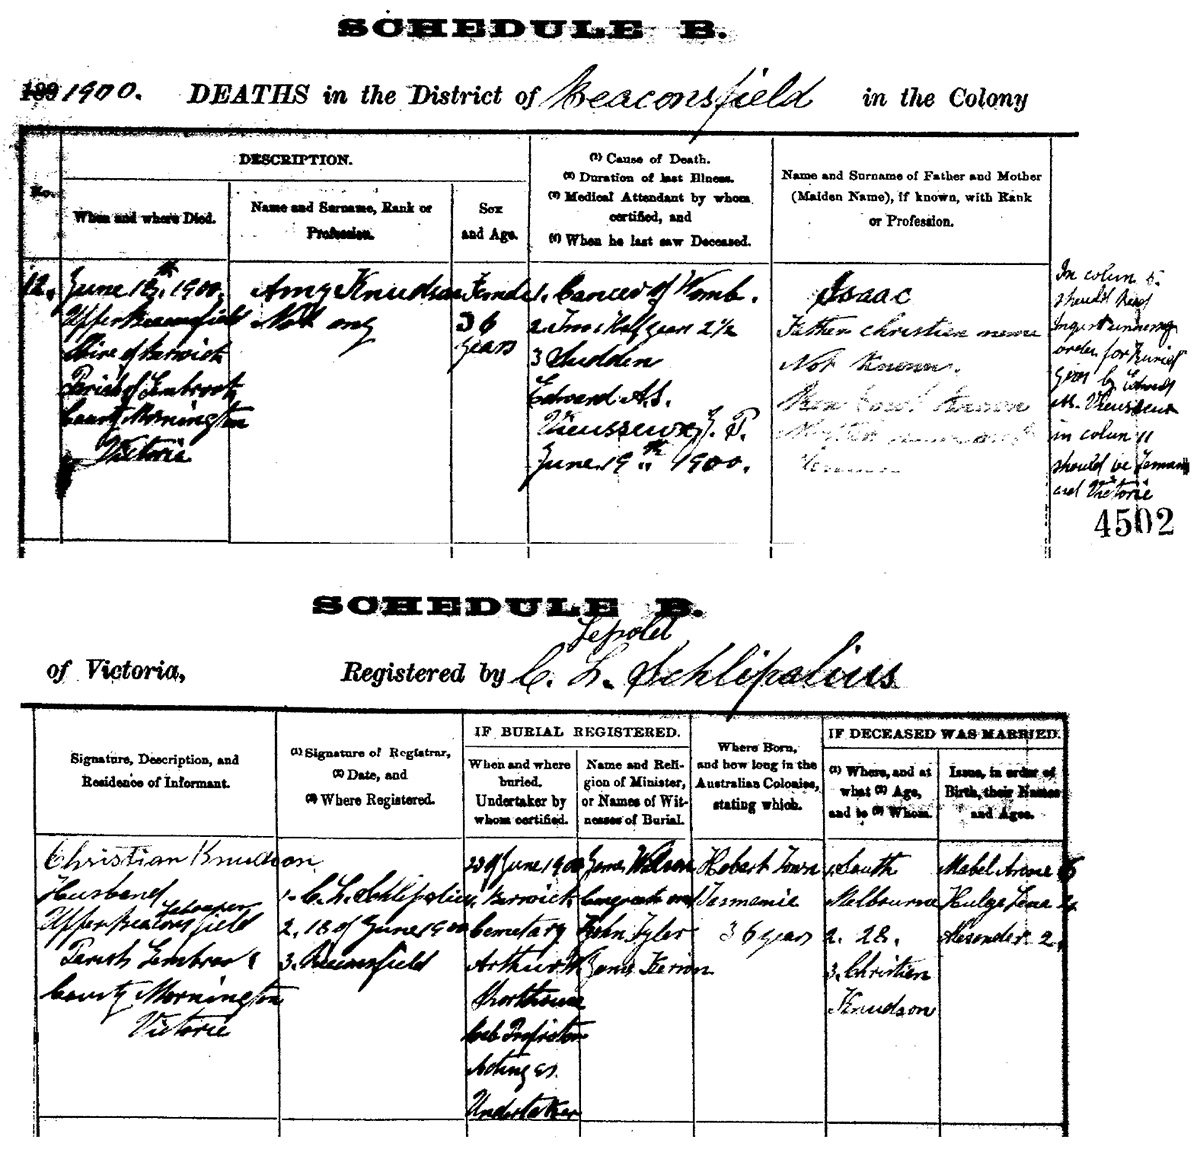 SCHEDULE B.
189 1900. DEATHS in the District of Beaconsfield in the Colony
No.
DESCRIPTION.
When and where Died.
Name and Surname, Rank or
Profession.
Sex
and Age.
(1) Cause of Death.
(2) Duration of last Illness.
(3) Medical Attendant by whom
certified, and
(4) When he last saw Deceased.
Name and Surname of Father and Mother
(Maiden Name), if known, with Rank
or Profession.
12.
June 18th 1900.
Upper Beaconsfield
Shire of Berwick
Parish of Gembrook
County Mornington
Victoria
Amy Knudson
Not any
Female
36
years
1. Cancer of Womb.
2. Two & Half year 2½
3 Sudden
Edward A.
Vieusseux J. P.
June 19th 1900.
Isaac
Father christian name
Not Known.
known
In colum 5.
should read
order for Burial
given by Edward
Vieusseux
in colum 11
should be
and Victoria
4502
SCHEDULE B.
Lepold
of Victoria, Registered by C. L. Schlipalius
Signature, Description, and
Residence of Informant.
(1) Signature of Registrar,
(2) Date, and
(3) Where Registered.
IF BURIAL REGISTERED.
When and where
buried.
Undertaker by
whom certified.
Name and Reli-
gion of Minister,
or Names of Wit-
nesses of Burial.
Where Born,
and how long in the
Australian Colonies,
stating which.
IF DECEASED WAS MARRIED.
(1) Where, and at
what (2) Age,
and to (3) Whom.
Issue, in order of
Birth, their Names
and Ages.
Christian Knudson
Husband
Labourer
Upper Beaconsfield
Parish Gembrook
County Mornington
Victoria
1. C. L. Schlipalius
2. 18 of June 1900
3. Beaconsfield
20 of June 1900
Berwick
Cemetary
Arthur
Shorthouse
Cab Propietor
Acting as
Undertaker
James Wilson
John Tyler
James
Hobart Town
Tasmania
36 years
1. South
Melbourne
2. 28.
3. Christian
Knudson
Mabel 6
4
2